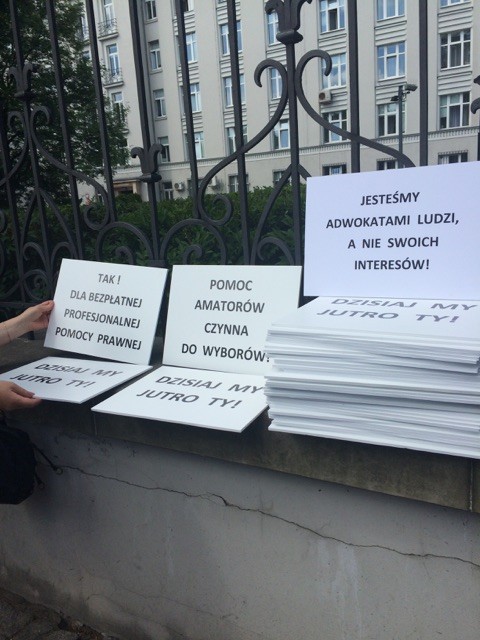 TAK !
DLA BEZPŁATNEJ
PROFESJONALNEJ
POMOCY PRAWNEJ
DZISIAJ MY
JUTRO TY!
POMOC
AMATORÓW
CZYNNA
DO WYBORÓW!
DZISIAJ MY
JUTRO TY!
JESTEŚMY
ADWOKATAMI LUDZI,
A NIE SWOICH
INTERESÓW!
DZISIAJ MY
JUTRO TY!